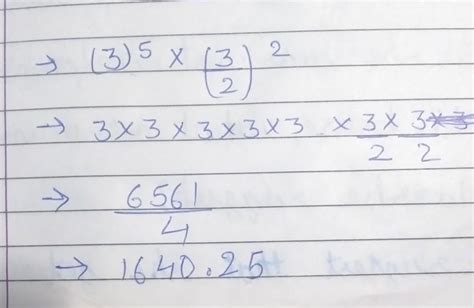 → (3)^5 × (3/2)^2
→ 3×3×3×3×3 × 3×3/2 2
→ 6561/4
→ 1640.25